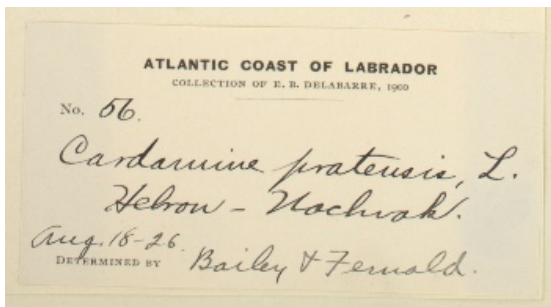 ATLANTIC COAST OF LABRADOR
COLLECTION OF E. B. DELABARRE, 1900
No. 56.
Cardamine pratensis, L.
Hebron - Nachvak.
Aug. 18-26.
DETERMINED BY Bailey & Fernald.